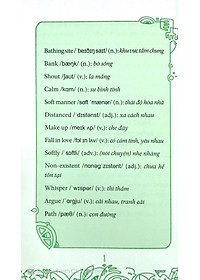 Bathing site / ˈbeɪðɪŋ saɪt/ (n.): khu vực tắm chung
Bank / bæŋk/ (n.): bờ sông
Shout / ʃaʊt/ (v.): la mắng
Calm / kɑm/ (n.): sự bình tĩnh
Soft manner / sɔft ˈmænər/ (n.): thái độ hòa nhã
Distanced / dɪstənst/ (adj.): xa cách nhau
Make up / meɪk ʌp/ (v.): che đậy
Fall in love / fɔl ɪn lʌv/ (v.): có cảm tình, yêu nhau
Softly / ˈsɔftli/ (adv.): (nói chuyện) nhẹ nhàng
Non-existent / nɑnəgˈzɪstənt/ (adj.): chưa hề
tồn tại
Whisper / ˈwɪspər/ (v.): thì thầm
Argue / ˈɑrgju/ (v.): cãi nhau, tranh cãi
Path / pæθ/ (n.): con đường